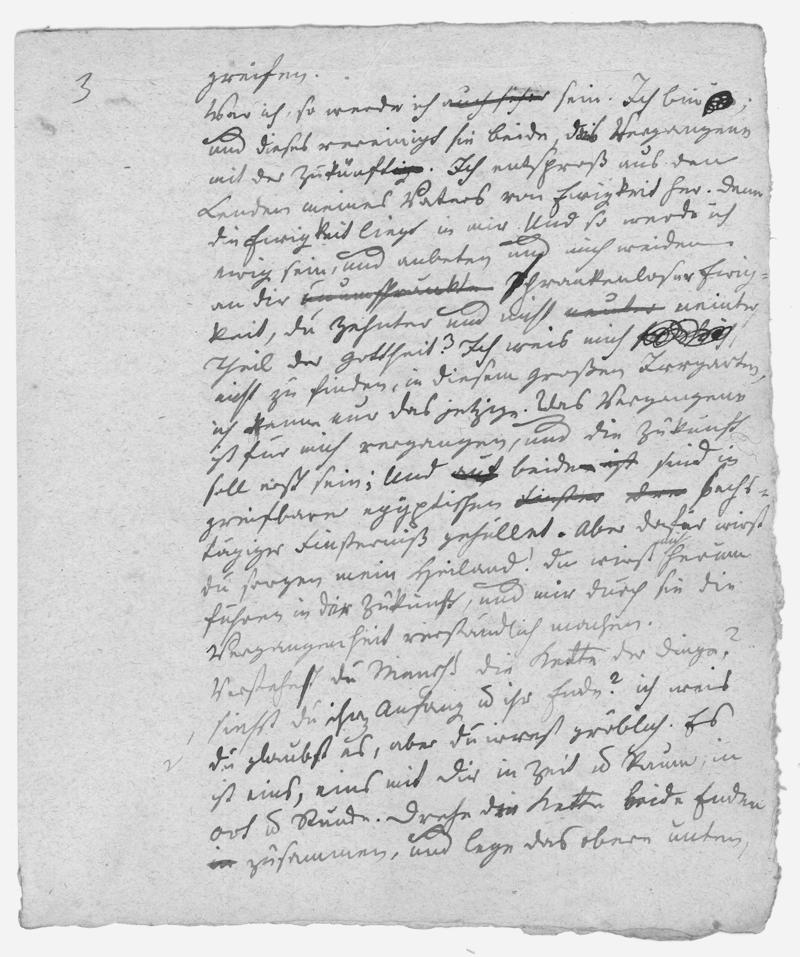 3
greifen.
War ich, so werde ich auch sein. Ich bin;
und dieses vereinigt sie beide, das Vergangene
mit der Zukünftig. Ich entsproß aus den
Lenden meines Vaters von Ewigkeit her. denn
die Ewigkeit liegt in mir. Und so werde ich
ewig sein, und anbeten und mich weiden
an dir Schrankenloser Ewig-
keit, du Zehnter und nicht neunter
Theil der Gottheit? Ich weis mich
nicht zu finden, in diesem großen Irrgarten,
ich kenne nur das jetzige. Das Vergangene
ist für mich vergangen, und die Zukunft
soll erst sein; Und auf beide ist sind in
greifbarer egyptischen
tägiger Finsterniß gehüllet. Aber dafür wirst
du sorgen mein Heiland! du wirst mich herum
führen in der Zukunft, und mir durch sie die
Vergangenheit verständlich machen.
Verstehest du Mensch die Kette der Dinge?
siehst du ihren Anfang u ihr Ende? ich weis
du glaubst es, aber du irrest gröblich. Es
ist eins, eins mit dir in Zeit u Raum, in
ort u Stunde. Drehe die Kette beide Enden
in zusammen, und lege das obere unten,